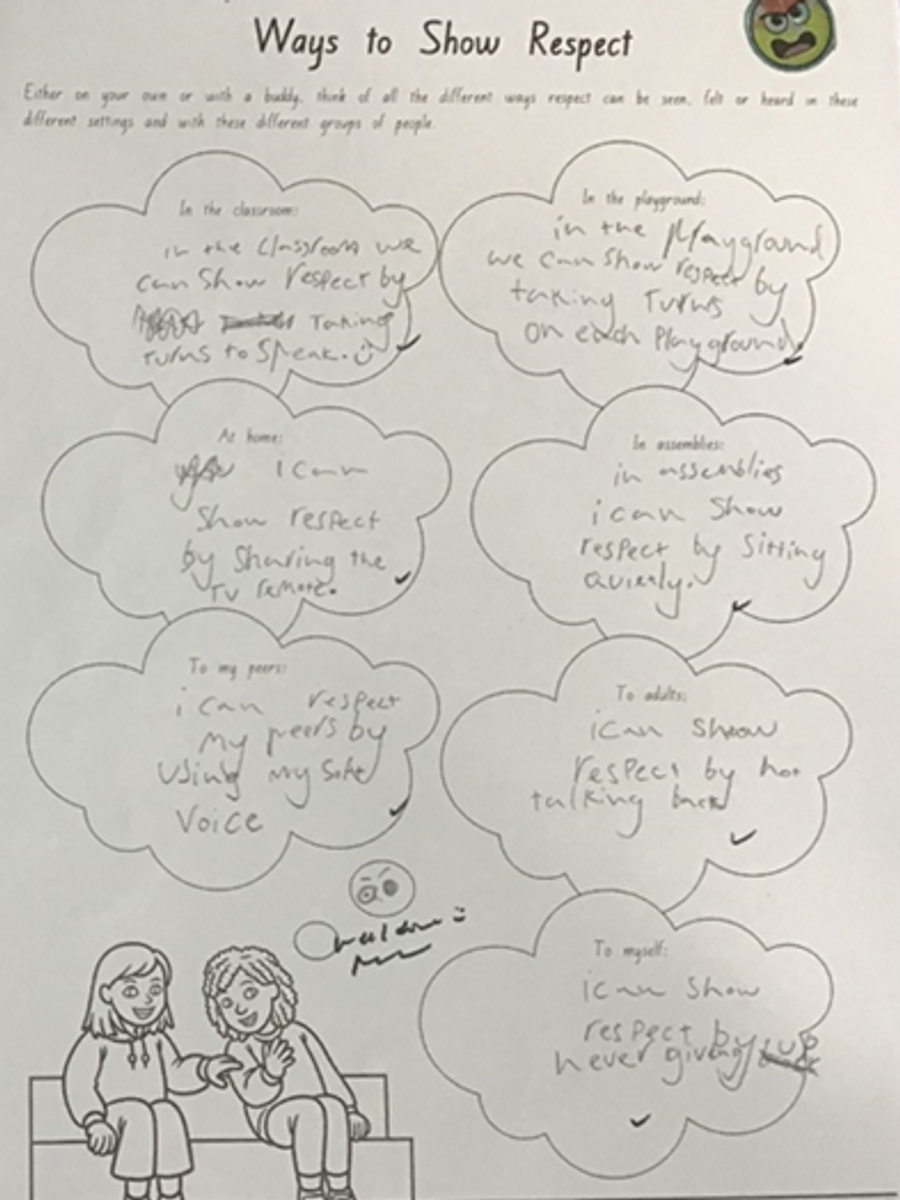 Ways to Show Respect
Either on your own or with a buddy, think of all the different ways respect can be seen, felt or heard in these
different settings and with these different groups of people.
In the classroom:
in the classroom we
can show respect by
Taking
turns to speak.
In the playground:
in the playground
we can show respect by
taking turns
on each playground.
At home:
i can
show respect
by sharing the
TV remote.
In assemblies:
in assemblies
i can show
respect by sitting
quietly.
To my peers:
i can respect
my peers by
using my soft
voice
To adults:
i can show
respect by not
talking back
well done
To myself:
i can show
respect by
never giving up